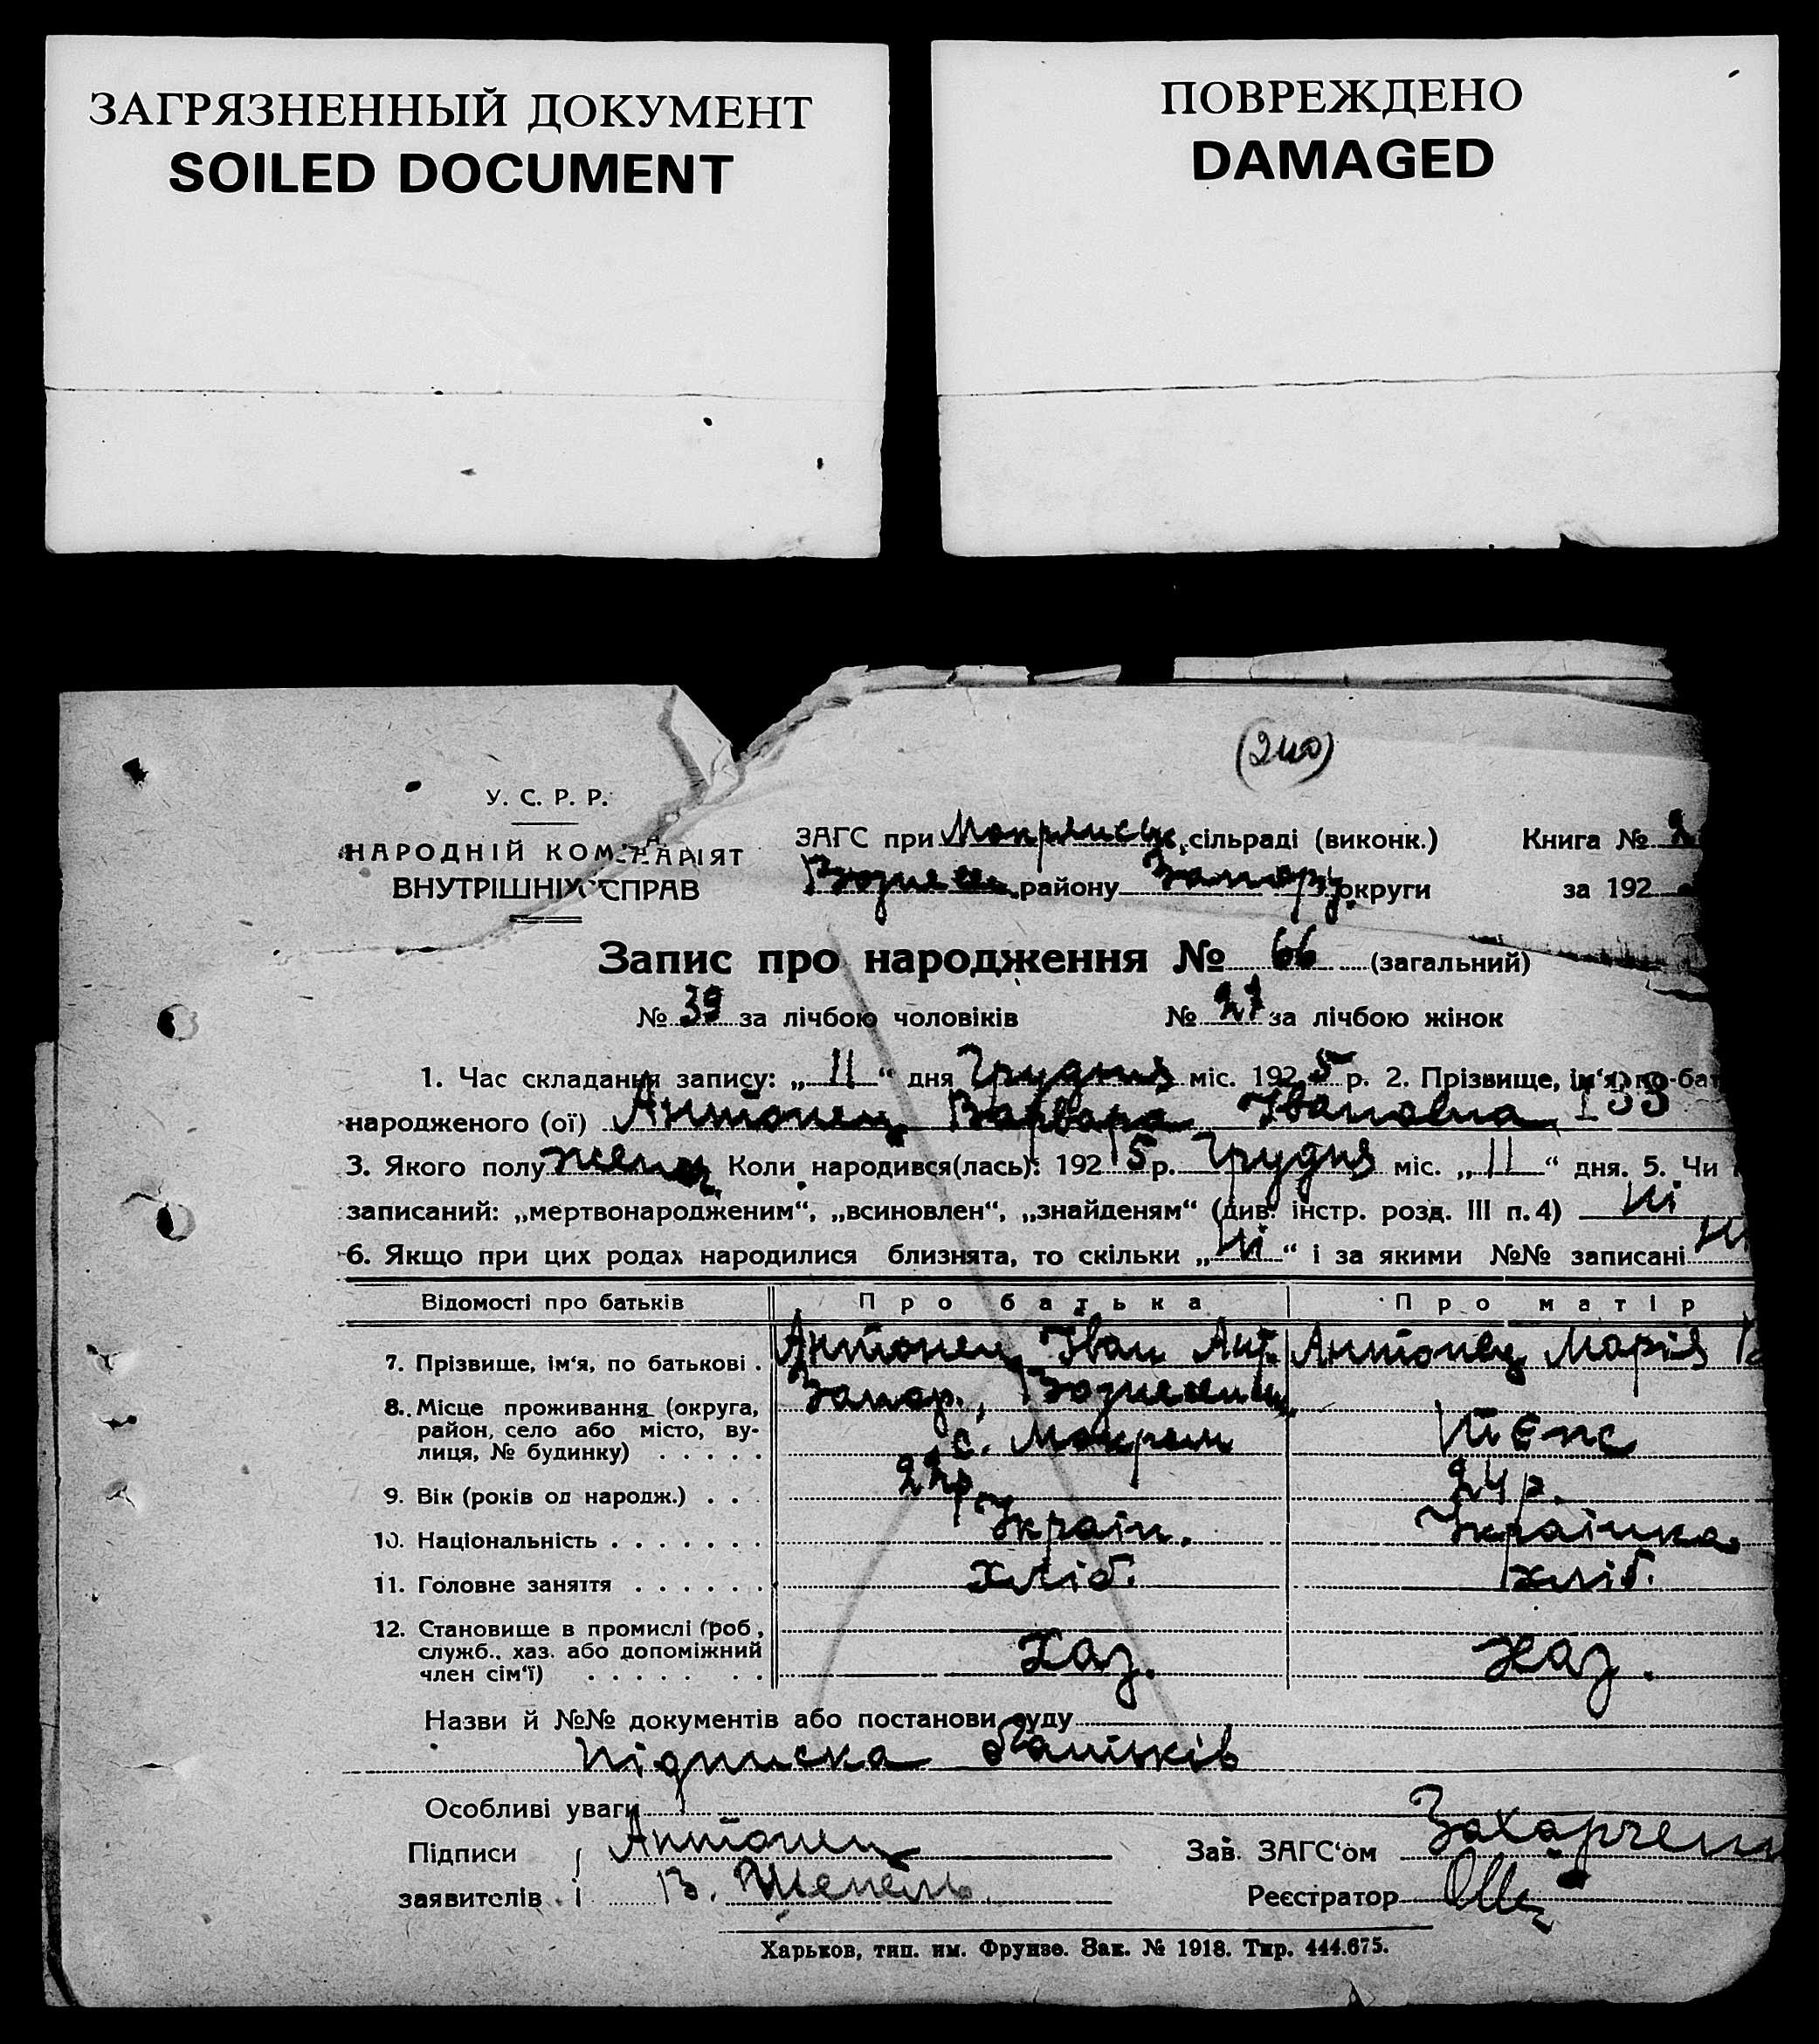 ЗАГРЯЗНЕННЫЙ ДОКУМЕНТ
SOILED DOCUMENT
ПОВРЕЖДЕНО
DAMAGED
(240)
У. С. Р. Р.
НАРОДНІЙ КОМ АРІЯТ
ВНУТРІШНІХ СПРАВ
ЗАГС при сільраді (виконк.)
району Запоріз. округи
Книга № 2
за 192
Запис про народження № 66 (загальний)
№ 39 за лічбою чоловіків № 27 за лічбою жінок
1. Час складання запису: „11“ дня Грудня міс. 1925 р. 2. Прізвище, ім‘я, по-бат
народженого (ої) Антонец Варвара Івановна 133
3. Якого полу женоч. Коли народився(лась): 1925 р. Грудня міс. „11“ дня. 5. Чи
записаний: „мертвонародженим“, „всиновлен“, „знайденям“ (див. інстр. розд. III п. 4) Ні
6. Якщо при цих родах народилися близнята, то скільки „Ні“ і за якими №№ записані
Відомості про батьків Про батька Про матір
7. Прізвище, ім‘я, по батькові . Антонец Іван Ант. Антонец Марія
8. Місце проживання (округа,
район, село або місто, ву-
лиця, № будинку) . . . . .
Запор.,
с.
9. Вік (років од народж.) . . 22р. 24 р.
10. Національність . . . . . . . Україн. Українка.
11. Головне заняття . . . . . . хліб. хліб.
12. Становище в промислі (роб,
служб., хаз. або допоміжний
член сім‘ї) . . . . . . .
Хаз. Хаз.
Назви й №№ документів або постанови суду
підписка батьків
Особливі уваги
Підписи Антонец Зав. ЗАГС‘ом Захарчен
заявителів і В. Шепель Реєстратор
Харьков, тип. им. Фрунзе. Зак. № 1918. Тир. 444.675.